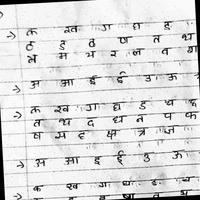 क ख ग घ ङ
ठ ड ढ ण त थ
म भ र ल व
अ आ इ ई उ ऊ
क ख ग घ ङ च छ
त थ द ध न प फ
ष स ह क्ष त्र ज्ञ
अ आ इ ई उ ऊ
क ख ग घ ङ च